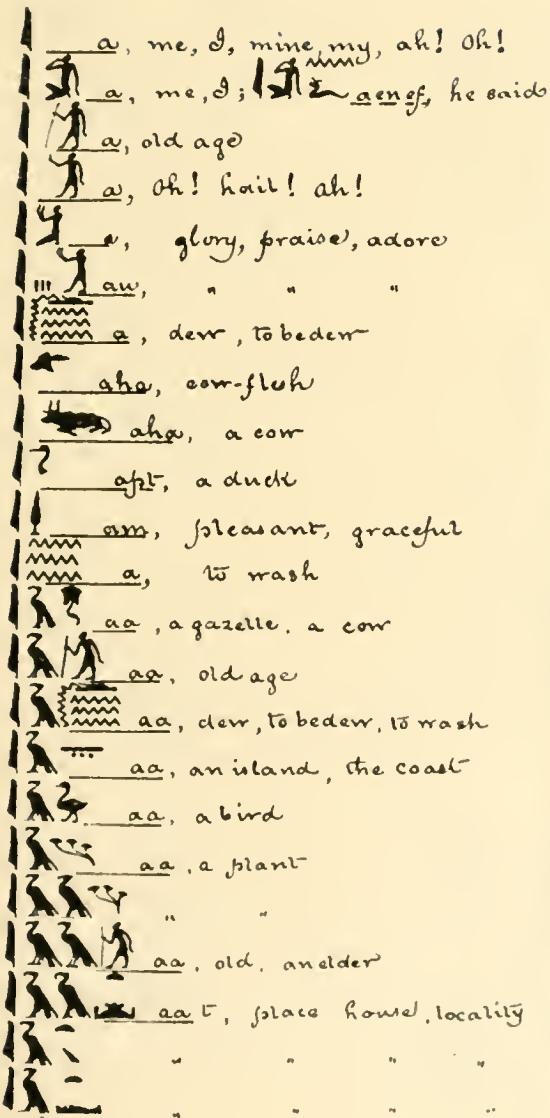 a, me, I, mine, my, ah! Oh!
a, me, I; aenef, he said
a, old age
a, Oh! hail! ah!
a, glory, praise, adore
au, " " "
a, dew, to bedew
aha, cow-flesh
aha, a cow
apt, a duck
am, pleasant, graceful
a, to wash
aa, a gazelle. a cow
aa, old age
aa, dew, to bedew, to wash
aa, an island, the coast
aa, a bird
aa, a plant
" "
aa, old. an elder
aat, place house, locality
" " " "
" " " "